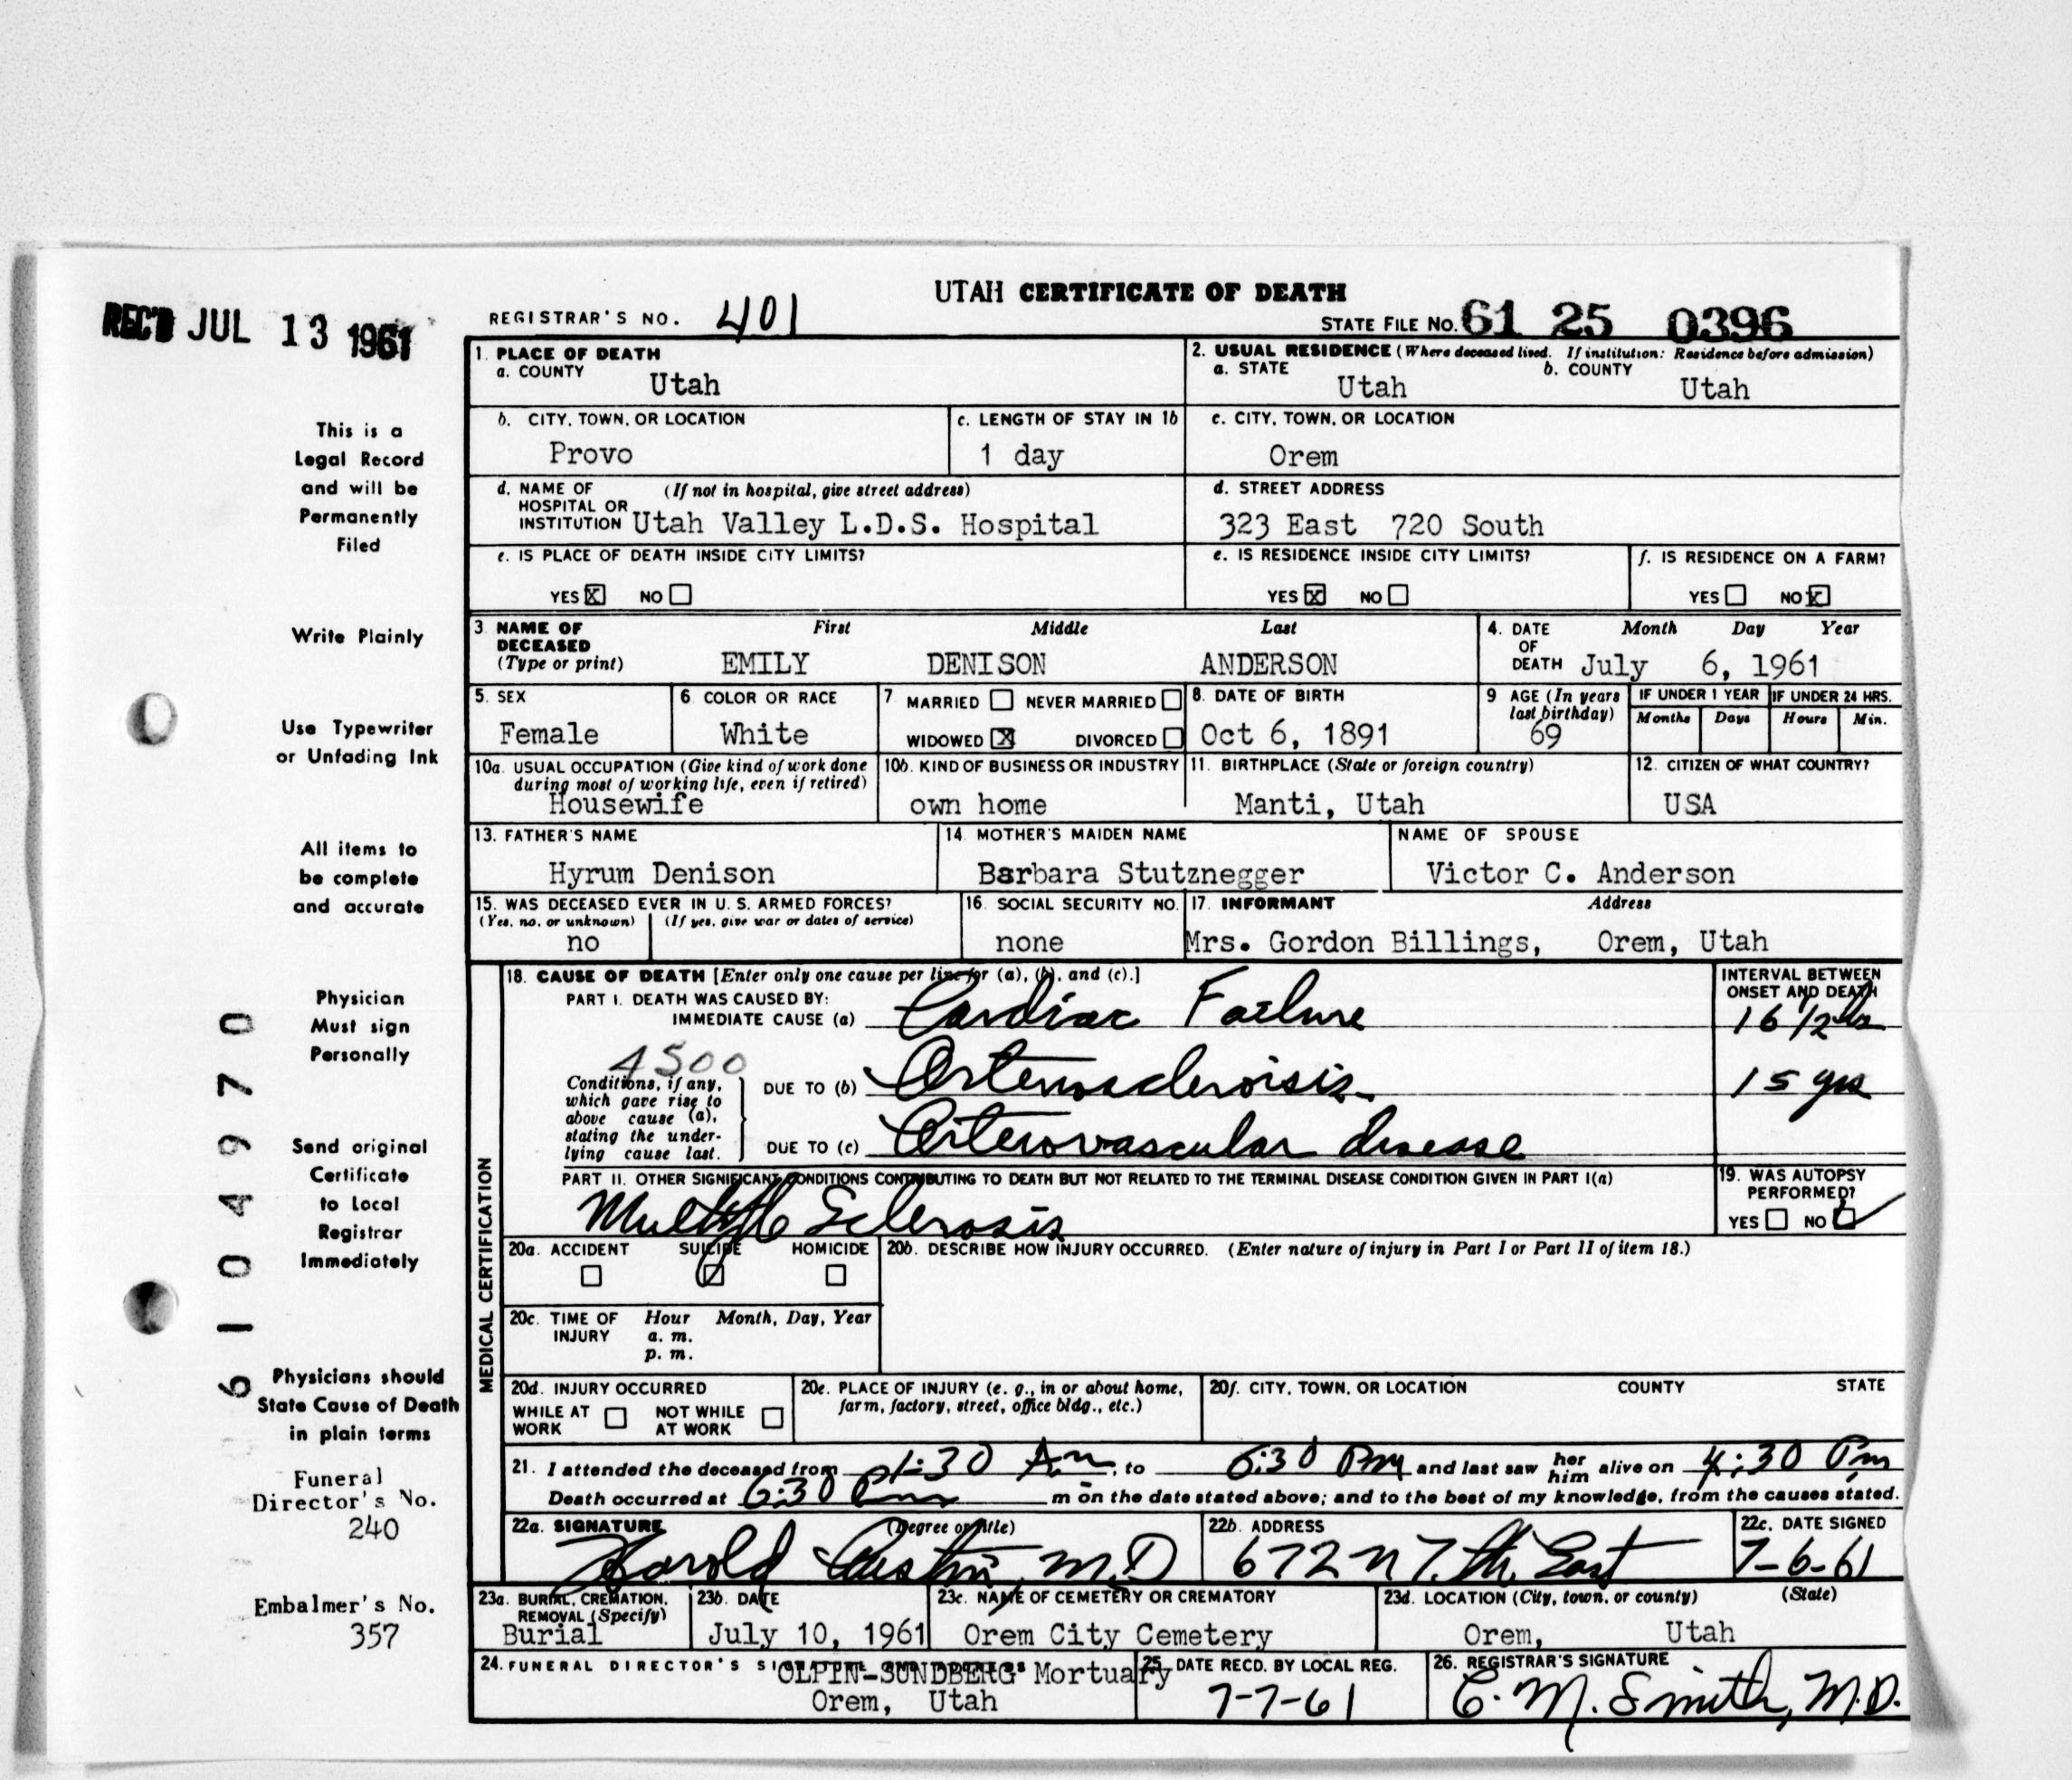 UTAH CERTIFICATE OF DEATH
REC'D JUL 13 1961
REGISTRAR'S NO. 401
STATE FILE No. 61 25 0396
1. PLACE OF DEATH
a. COUNTY
Utah
2. USUAL RESIDENCE (Where deceased lived. If institution: Residence before admission)
a. STATE b. COUNTY
Utah Utah
b. CITY, TOWN, OR LOCATION
Provo
c. LENGTH OF STAY IN 1b
1 day
c. CITY, TOWN, OR LOCATION
Orem
d. NAME OF (If not in hospital, give street address)
HOSPITAL OR
INSTITUTION Utah Valley L.D.S. Hospital
d. STREET ADDRESS
323 East 720 South
e. IS PLACE OF DEATH INSIDE CITY LIMITS?
YES X NO
e. IS RESIDENCE INSIDE CITY LIMITS?
YES X NO
f. IS RESIDENCE ON A FARM?
YES NO X
3. NAME OF First Middle Last
DECEASED
(Type or print) EMILY DENISON ANDERSON
4. DATE Month Day Year
OF
DEATH July 6, 1961
5. SEX
Female
6. COLOR OR RACE
White
7. MARRIED NEVER MARRIED
WIDOWED X DIVORCED
8. DATE OF BIRTH
Oct 6, 1891
9 AGE (In years
last birthday)
69
IF UNDER 1 YEAR IF UNDER 24 HRS.
Months Days Hours Min.
10a. USUAL OCCUPATION (Give kind of work done
during most of working life, even if retired)
Housewife
10b. KIND OF BUSINESS OR INDUSTRY
own home
11. BIRTHPLACE (State or foreign country)
Manti, Utah
12. CITIZEN OF WHAT COUNTRY?
USA
13. FATHER'S NAME
Hyrum Denison
14. MOTHER'S MAIDEN NAME
Barbara Stutznegger
NAME OF SPOUSE
Victor C. Anderson
15. WAS DECEASED EVER IN U. S. ARMED FORCES?
(Yes, no, or unknown) (If yes, give war or dates of service)
no
16. SOCIAL SECURITY NO.
none
17. INFORMANT Address
Mrs. Gordon Billings, Orem, Utah
MEDICAL CERTIFICATION
18. CAUSE OF DEATH [Enter only one cause per line for (a), (b), and (c).]
PART I. DEATH WAS CAUSED BY:
IMMEDIATE CAUSE (a) Cardiac Failure
INTERVAL BETWEEN
ONSET AND DEATH
16 1/2 hr
4500
Conditions, if any,
which gave rise to
above cause (a),
stating the under-
lying cause last.
DUE TO (b) Arteriosclerosis
15 yrs
DUE TO (c) Arterovascular disease
PART II. OTHER SIGNIFICANT CONDITIONS CONTRIBUTING TO DEATH BUT NOT RELATED TO THE TERMINAL DISEASE CONDITION GIVEN IN PART I(a)
Multiple Sclerosis
19. WAS AUTOPSY
PERFORMED?
YES NO ✓
20a. ACCIDENT SUICIDE HOMICIDE
20b. DESCRIBE HOW INJURY OCCURRED. (Enter nature of injury in Part I or Part II of item 18.)
20c. TIME OF Hour Month, Day, Year
INJURY a. m.
p. m.
20d. INJURY OCCURRED
WHILE AT NOT WHILE
WORK AT WORK
20e. PLACE OF INJURY (e. g., in or about home,
farm, factory, street, office bldg., etc.)
20f. CITY, TOWN, OR LOCATION COUNTY STATE
21. I attended the deceased from 1:30 Am, to 6:30 Pm and last saw her him alive on 4:30 Pm
Death occurred at 6:30 Pm m on the date stated above; and to the best of my knowledge, from the causes stated.
22a. SIGNATURE (Degree or title)
Harold Austin, M.D
22b. ADDRESS
672 N 7.th. East
22c. DATE SIGNED
7-6-61
23a. BURIAL, CREMATION,
REMOVAL (Specify)
Burial
23b. DATE
July 10, 1961
23c. NAME OF CEMETERY OR CREMATORY
Orem City Cemetery
23d. LOCATION (City, town, or county) (State)
Orem, Utah
24. FUNERAL DIRECTOR'S
OLPIN-SUNDBERG Mortuary
Orem, Utah
25. DATE RECD. BY LOCAL REG.
7-7-61
26. REGISTRAR'S SIGNATURE
C. M. Smith, M.D.
This is a
Legal Record
and will be
Permanently
Filed
Write Plainly
Use Typewriter
or Unfading Ink
All items to
be complete
and accurate
Physician
Must sign
Personally
Send original
Certificate
to Local
Registrar
Immediately
Physicians should
State Cause of Death
in plain terms
Funeral
Director's No.
240
Embalmer's No.
357
6104970